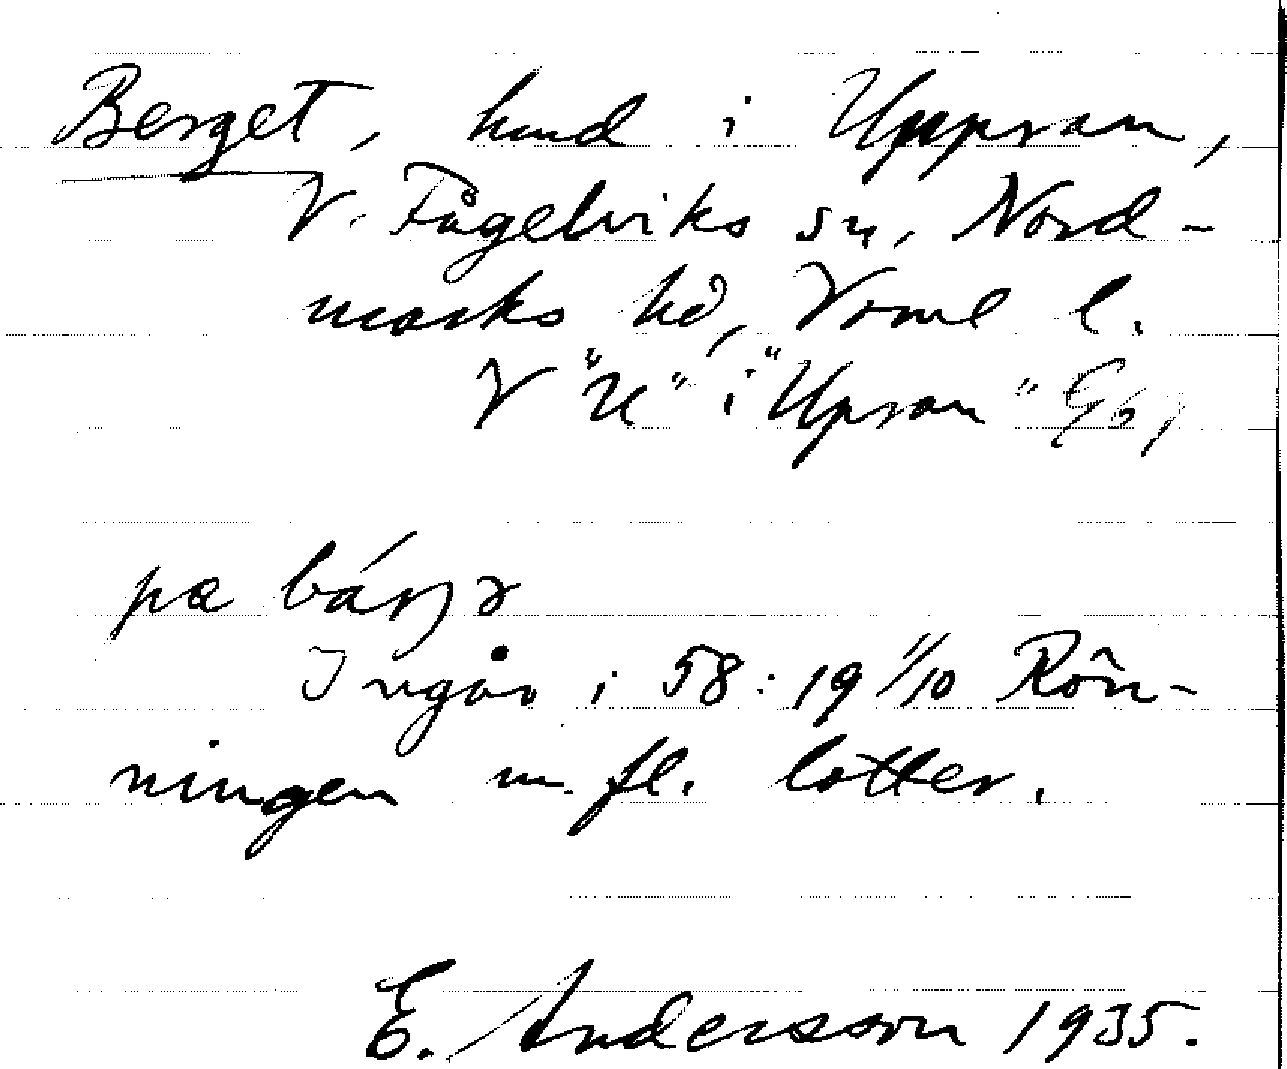 Berget, hmd i Uppsam,
V. Fågelviks sn, Nord-
marks hd, Vrml l.
V "U" i "Upsam" Gb)
pæ bárjə
Ingår i 58:19 1/10 Rön-
ningen m. fl. lotter.
E. Andersson 1935.